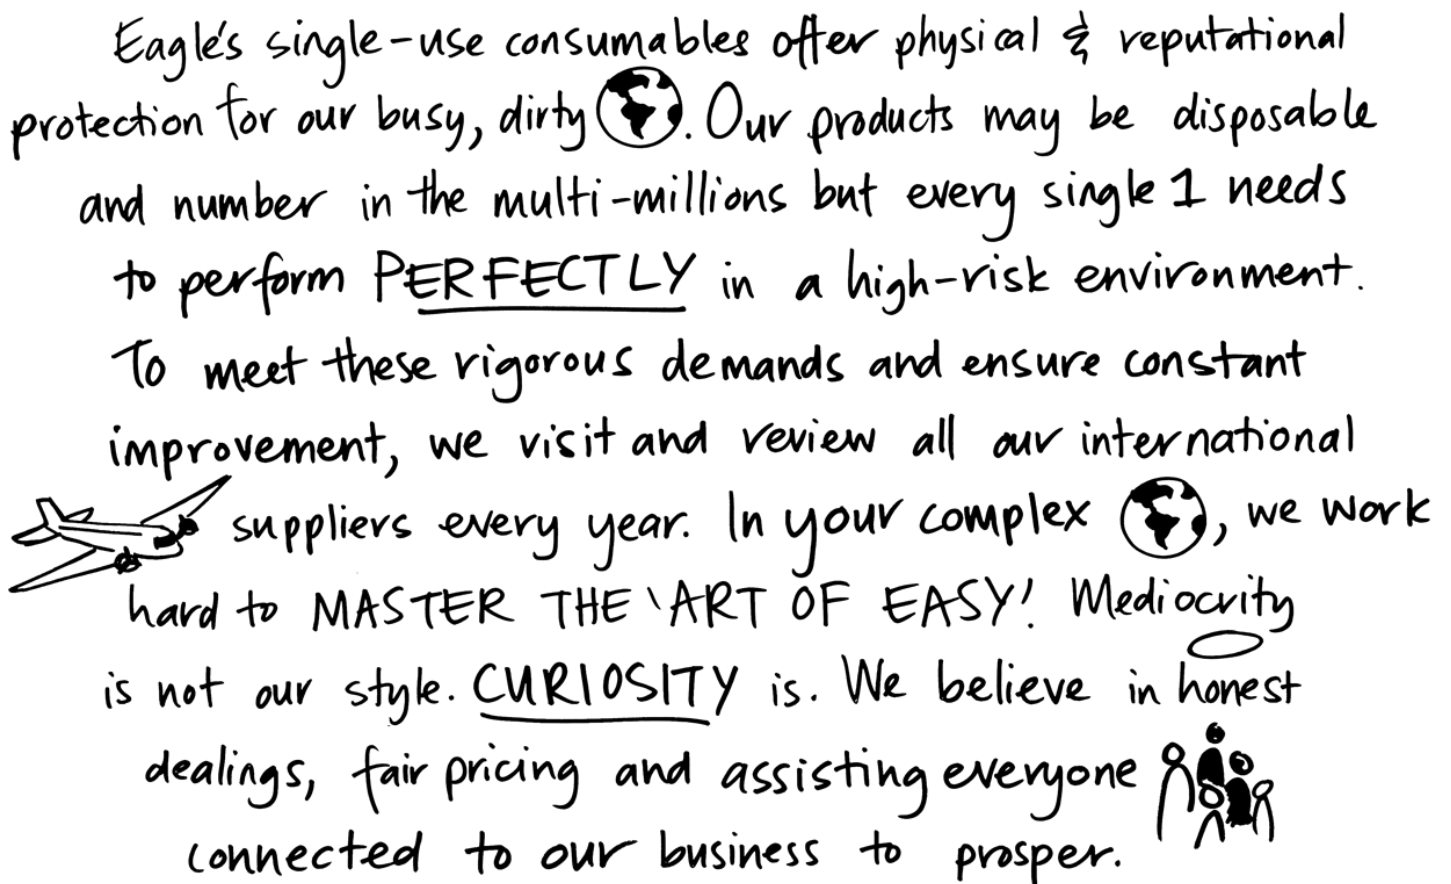 Eagle's single-use consumables offer physical & reputational
protection for our busy, dirty. Our products may be disposable
and number in the multi-millions but every single 1 needs
to perform PERFECTLY in a high-risk environment.
To meet these rigorous demands and ensure constant
improvement, we visit and review all our international
suppliers every year. In your complex , we work
hard to MASTER THE 'ART OF EASY! Mediocrity
is not our style. CURIOSITY is. We believe in honest
dealings, fair pricing and assisting everyone
connected to our business to prosper.